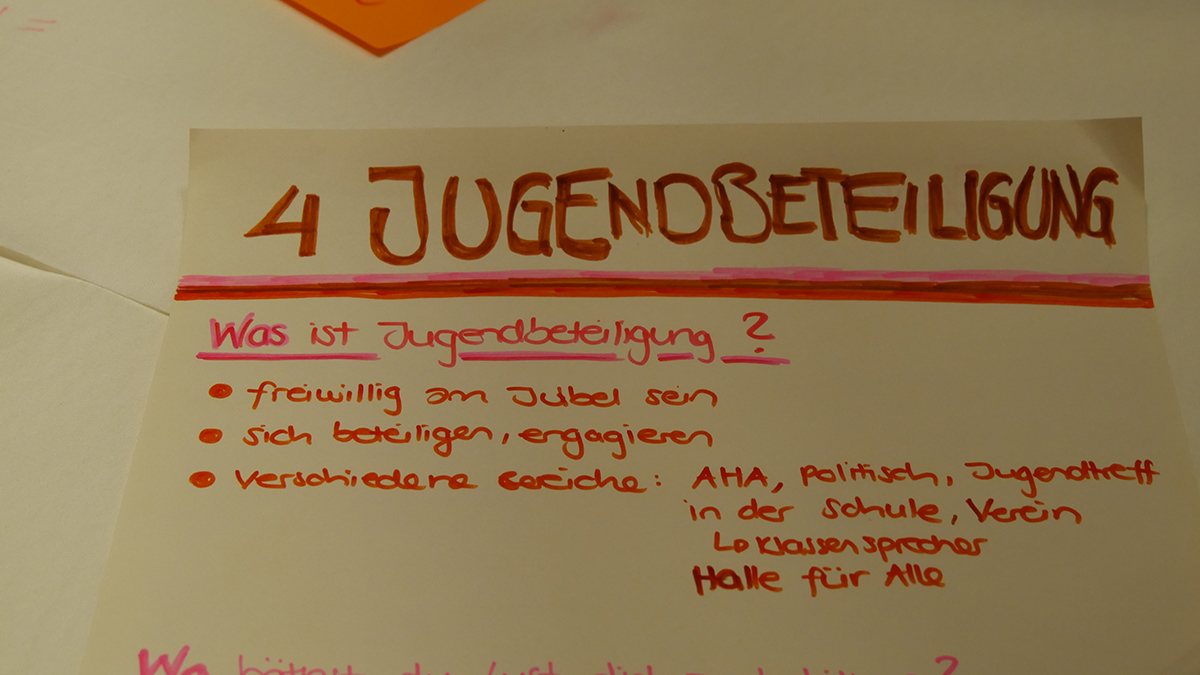 4 JUGENDBETEILIGUNG
Was ist Jugendbeteiligung ?
• freiwillig am Jubel sein
• sich beteiligen, engagieren
• verschiedene Bereiche: AHA, politisch, Jugendtreff
in der Schule, Verein
↳ Klassensprecher
Halle für Alle
Wo hättest du Lust dich ?